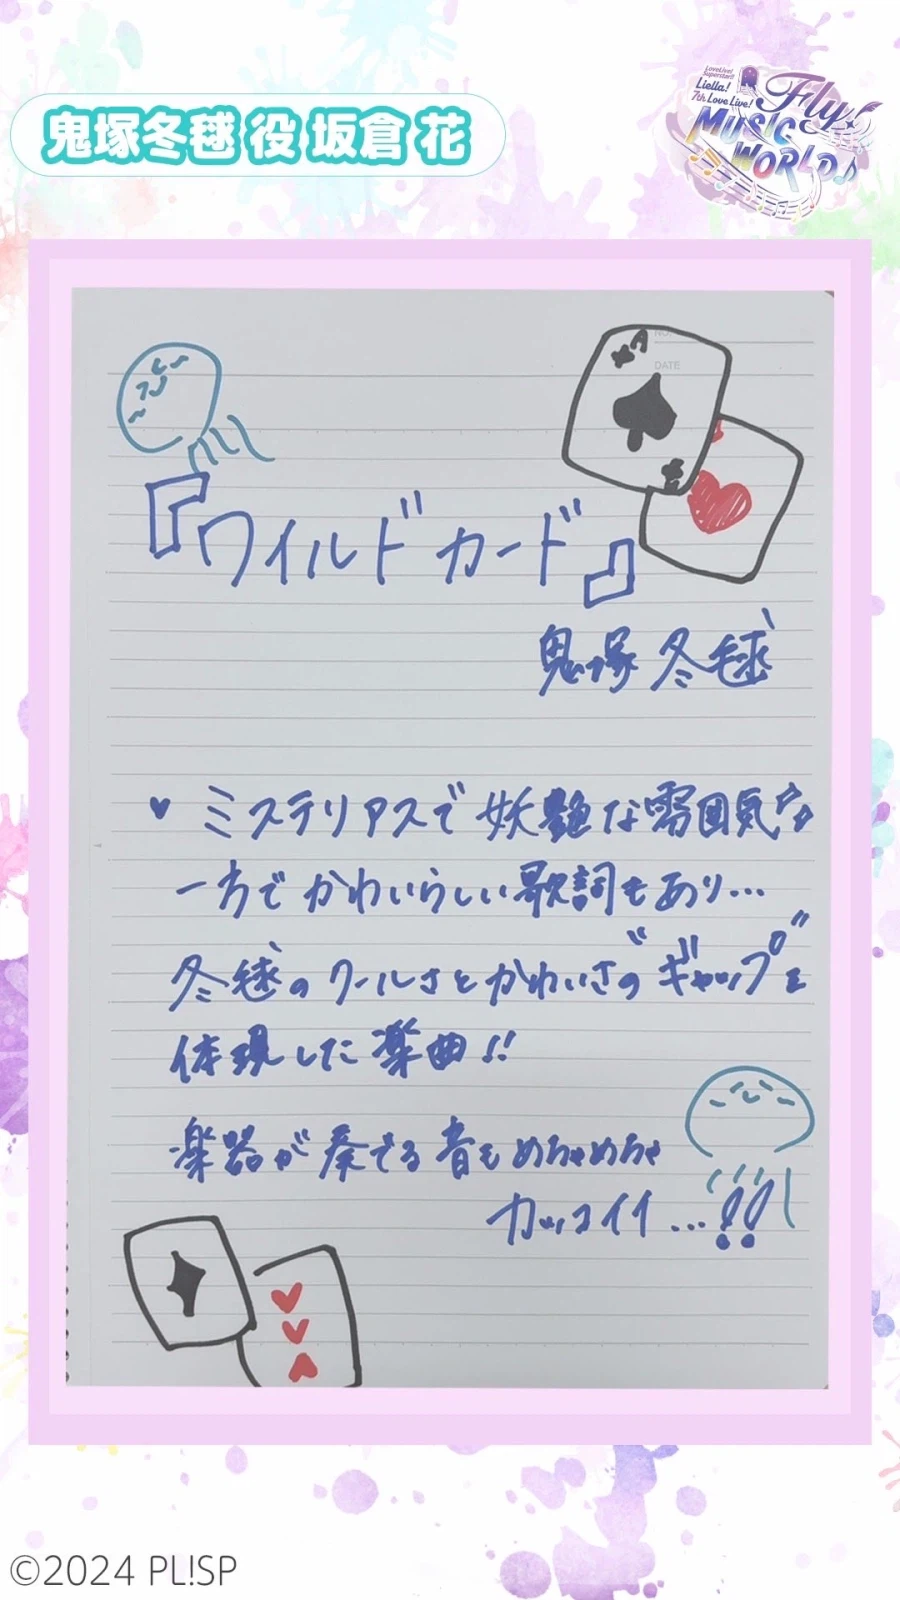 鬼塚冬毬 役 坂倉 花
LoveLive!
Superstar!!
Liella!
7th LoveLive!
Fly!
MUSIC
WORLD♪
NO.
DATE
A
『ワイルドカード』
鬼塚 冬毬
♥ ミステリアスで妖艶な雰囲気♡♡
一方でかわいらしい歌詞もあり…
冬毬のクールさとかわいさの"ギャップ"を
体現した楽曲!!
楽器が奏でる音もめちゃめちゃ
カッコイイ…!!
©2024 PL!SP